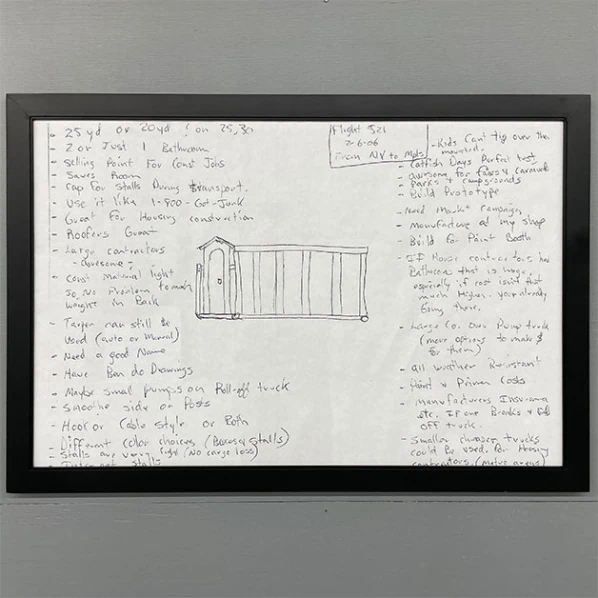 - 25 yd or 20 yd ! on 25, 30
- 2 or Just 1 Bathroom
- Selling Point For Const Jobs
- Saves Room
- Cap For Stalls During transport.
- Use it like 1-800-Got-Junk
- Great For Housing construction
- Roofers Great
- Large contractors
- Awesome!
- Const Material light
So No Problem to much
weight in Back
- Tarper can still be
used (auto or Manual)
- Need a good Name
- Have Ben do Drawings
- Maybe small pumps on Roll-off truck
- Smoothe side or Posts
- Hook or Cable style or Both
- Different color choices (Boxes & Stalls)
- Stalls are very light (No cargo loss)
Stalls
Flight 521
2-6-06
From NV to Mpls
- Kids Can't tip over the
- Catfish Days Perfect test
- Awesome for fairs & carnivals
- Parks & campgrounds
- Build Prototype
- Need Markt campaign
- Manufacture at my shop
- Build For Paint Booth
- If House contractors had
Bathroom that is huge,
especially if cost isn't that
much Higher. your already
Going there.
- Large Co. Own Pump truck
(more options to make $
for them)
- All weather Resistant
- Paint & Primer Costs
- Manufacturers Insurance
etc. If one Breaks & Falls
off truck.
- Smaller cheaper trucks
could be used. For Housing
contractors. (Metro areas)